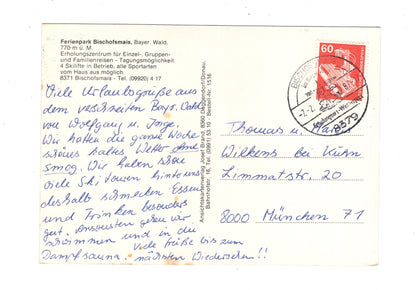 Ferienpark Bischofsmais, Bayer. Wald,
770 m ü. M.
Erholungszentrum für Einzel-, Gruppen-
und Familienreisen - Tagungsmöglichkeit
4 Skilifte in Betrieb, alle Sportarten
vom Haus aus möglich.
8371 Bischofsmais - Tel. (09920) 4 17
Viele Urlaubsgrüße aus
dem verschneiten Bayr. Wald
von Wolfgang u. Inge.
Wir hatten die ganze Woche
schönes kaltes Wetter ohne
Smog. Wir haben schon
viele Skitouren hinter uns
deshalb schmecken Essen
und Trinken besonders
gut. Ansonsten gehen wir
schwimmen und in die
Dampfsauna. Viele Grüße bis zum
nächsten Wiedersehen!!
Ansichtskartenverlag Josef Brand, 8360 Deggendorf/Donau,
Bahnhofstr. 16, Tel. (0991) 53
60
8379
Thomas u.
Wilkens bei Kühn
Limmatstr. 20
8000 München 71